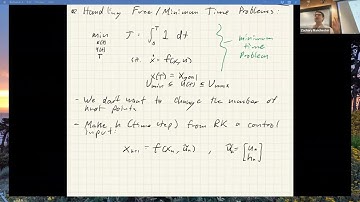 * Handling Free/Minimum Time Problems:
min x(t) u(t) T J = ∫₀ᵀ 1 dt
s.t. ẋ = f(x,u)
x(T) = x_goal
u_min ≤ u(t) ≤ u_max
minimum
time
Problem
- We don't want to change the number of
knot points
- Make h (time step) from RK a control
input:
x_{n+1} = f(x_n, ũ_n) , ũ_n = [u_n h_n]
Zachary Manchester